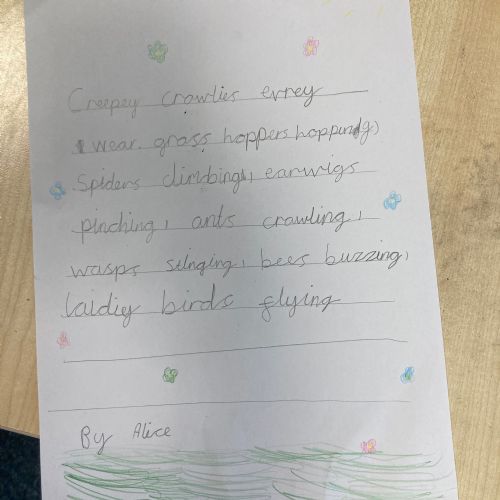 Creepey crawlies evrey
wear. grass hoppers hopping,
Spiders climbing, earwigs
pinching, ants crawling,
wasps stinging, bees buzzing,
laidiey birds flying
By Alice